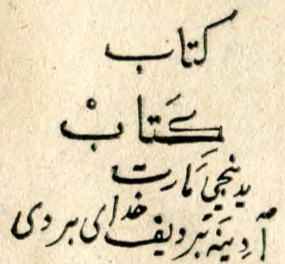 کتاب
کِتَابْ
یدنجی مارت
آدینه بردیف خدای بردی